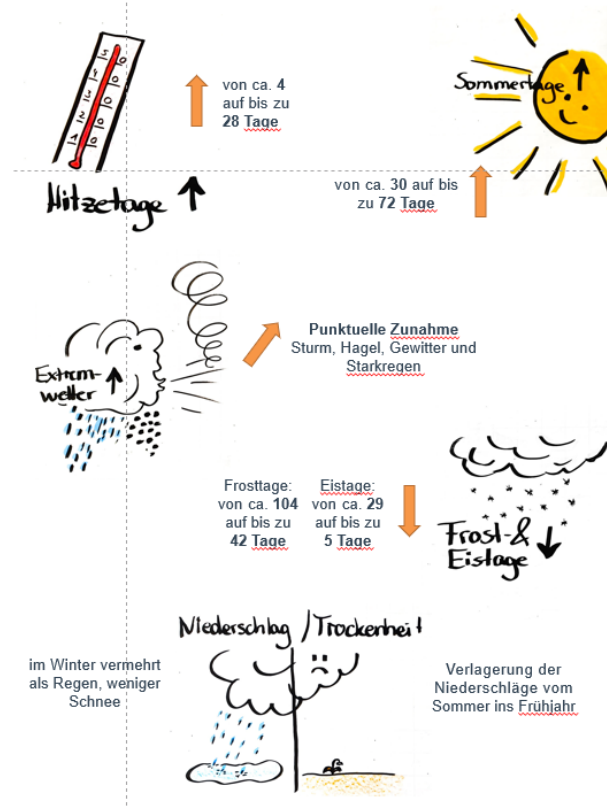 von ca. 4
auf bis zu
28 Tage
Hitzetage
Sommertage
von ca. 30 auf bis
zu 72 Tage
Punktuelle Zunahme
Sturm, Hagel, Gewitter und
Starkregen
Extrem-
wetter
Frosttage:
von ca. 104
auf bis zu
42 Tage
Eistage:
von ca. 29
auf bis zu
5 Tage
Frost-&
Eistage
Niederschlag / Trockenheit
im Winter vermehrt
als Regen, weniger
Schnee
Verlagerung der
Niederschläge vom
Sommer ins Frühjahr